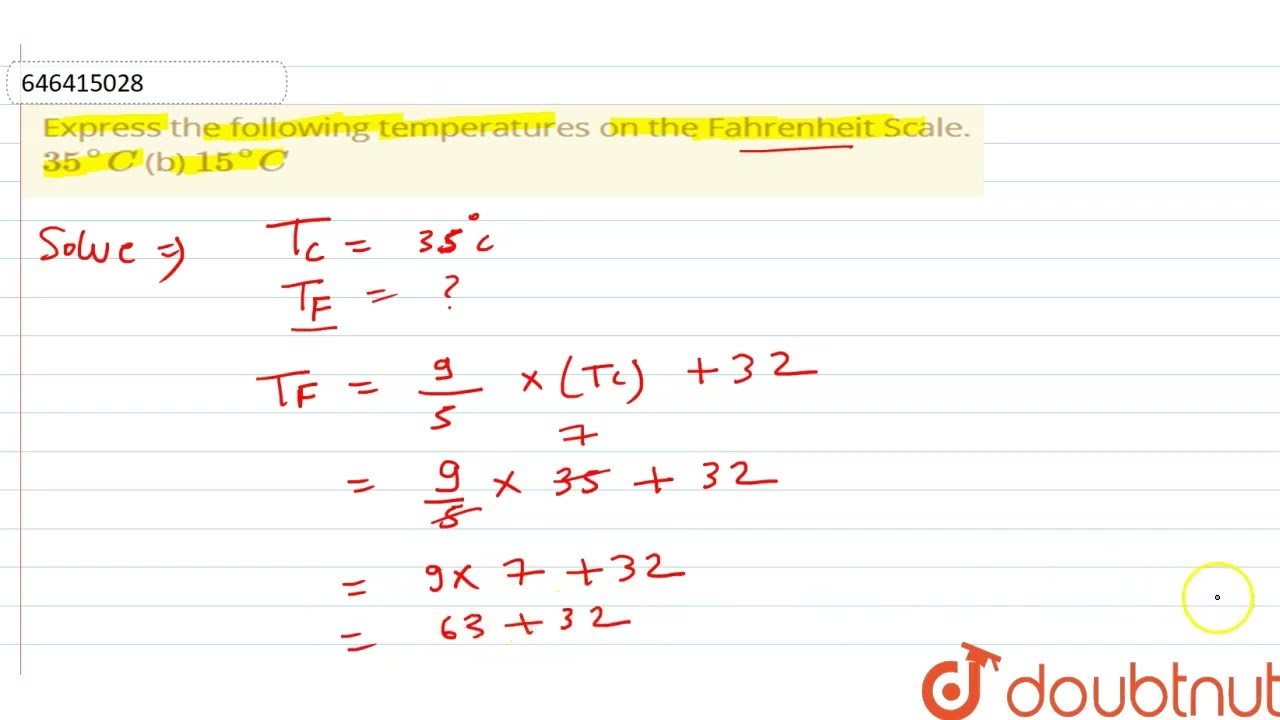 646415028
Express the following temperatures on the Fahrenheit Scale.
35°C (b) 15°C
Solve ⇒ T_C = 35°C
T_F = ?
T_F = 9/5 × (T_C) + 32
7
= 9/5 × 35 + 32
= 9 × 7 + 32
= 63 + 32
doubtnut